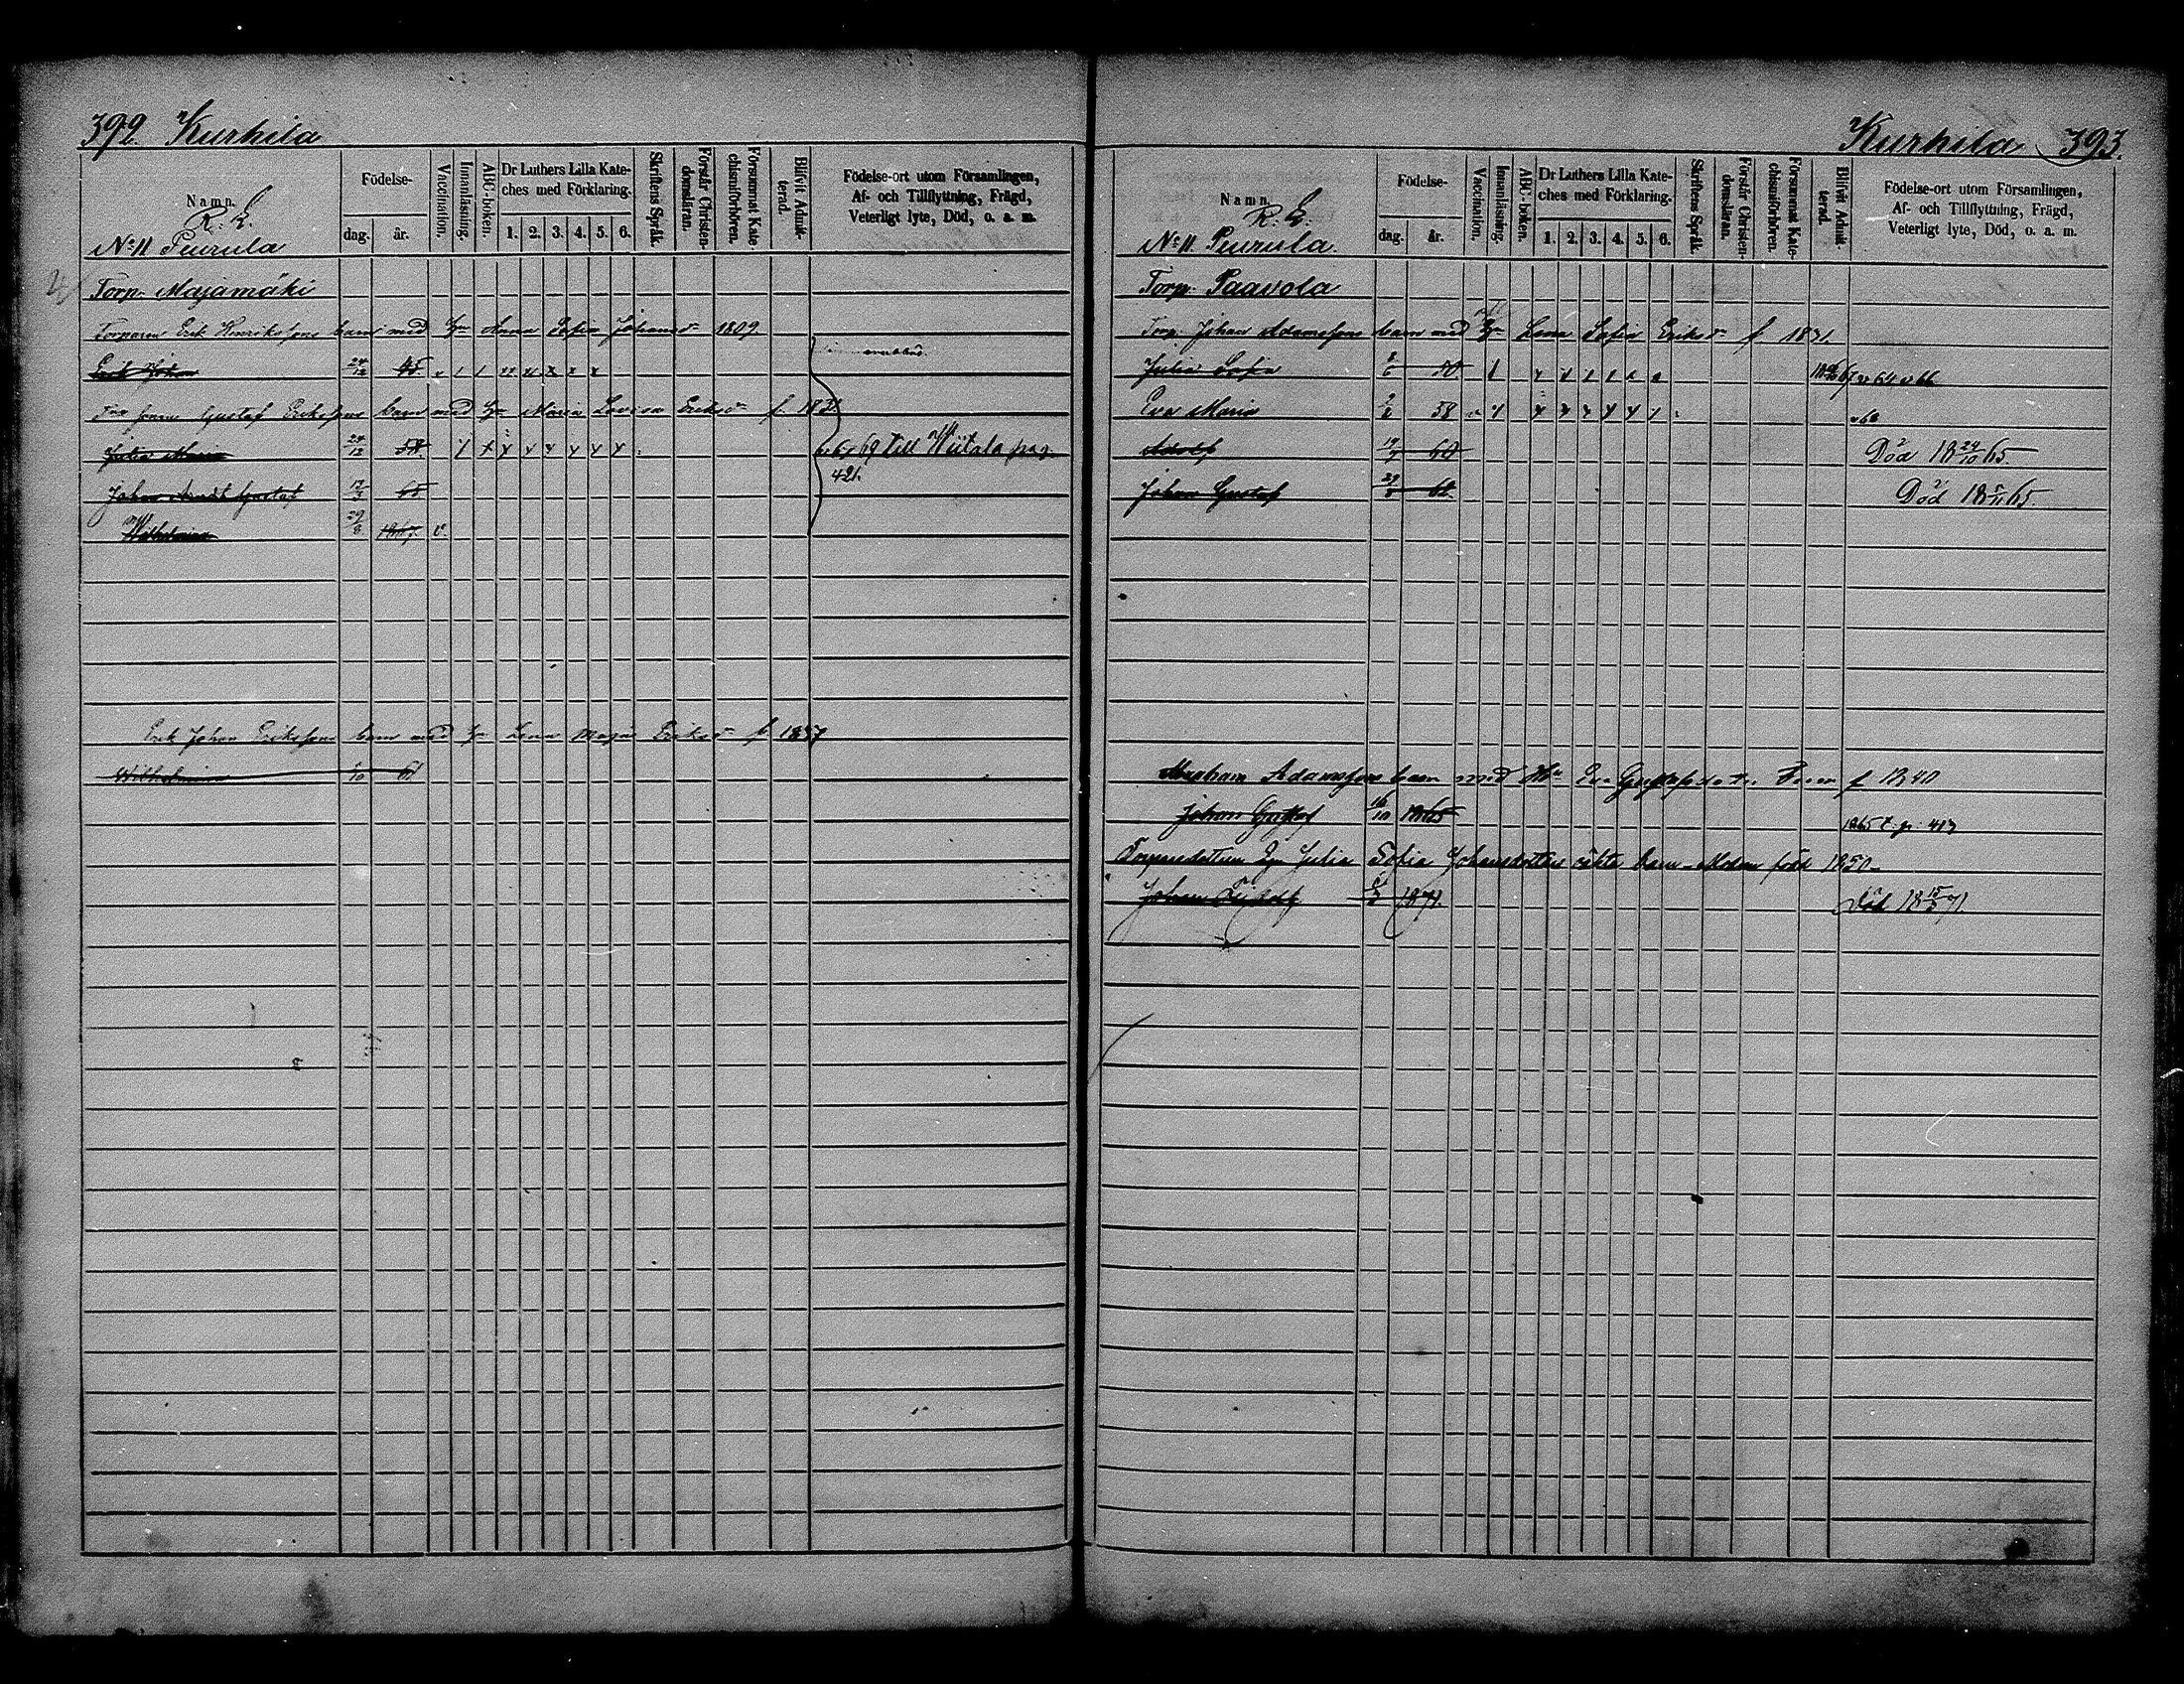 392. Kurhila
Namn.
R. L.
No 11 Puurula
Födelse-
dag.
år.
Vaccination.
Innanläsning.
ABC-boken.
Dr Luthers Lilla Kate-
ches med Förklaring.
1. 2. 3. 4. 5. 6.
Skriftens Språk.
Förstår Christen-
domsläran.
Försummat Kate-
chismiförhören.
Blifvit Admit-
terad.
Födelse-ort utom Församlingen,
Af- och Tillflyttning, Frägd,
Veterligt lyte, Död, o. a. m.
Torp. Majamäki
Torparen Erik Henrikssons barn med Hu Anna Sofia Johansdr 1809.
Erik Johan 24/12 45
Gustaf Erikssons barn med Hu Maria Lovisa Eriksdr f. 1831
Julia Maria 24/12 58
69 till Wiitala pag.
421.
Johan Arvid Gustaf 12/3 65
Wilhelmina 29/8 1867. v.
Erik Johan Erikssons barn med Hu Lena Maja Eriksdr f. 1837
Wilhelmina /10 61
Kurhila 393.
Namn.
R. L.
No 11. Puurula.
Födelse-
dag.
år.
Vaccination.
Innanläsning.
ABC-boken.
Dr Luthers Lilla Kate-
ches med Förklaring.
1. 2. 3. 4. 5. 6.
Skriftens Språk.
Förstår Christen-
domsläran.
Försummat Kate-
chismiförhören.
Blifvit Admit-
terad.
Födelse-ort utom Församlingen,
Af- och Tillflyttning, Frägd,
Veterligt lyte, Död, o. a. m.
Torp. Paavola
Torp. Johan Adamssons barn med Hu Lena Sofia Eriksdr f 1831.
Julia Sofia 50
Eva Maria 58
Adolf 19/7 60 Död 18 24/10 65.
Johan Gustaf 29/8 62 Död 18 5/11 65.
Abraham Adamssons barn med Hu Eva Gustafsdotter f 1840
Johan Gustaf 16/10 1865 1865 t. p. 413
Torparedottern Julia Sofia Johansdotters oäkta barn - Modren född 1850 -
Johan 1871. Död 18 15/ 71.